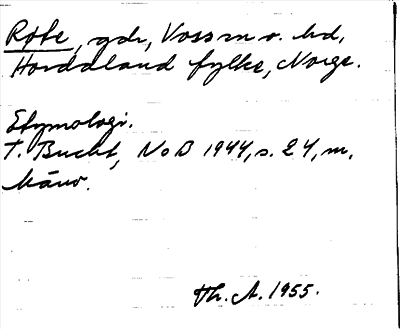 Røte, gdr, Voss sn o. hd,
Hordaland fylke, Norge.
Etymologi.
T. Bucht, NoB 1944, s. 24, m.
hänv.
Th. A. 1955.